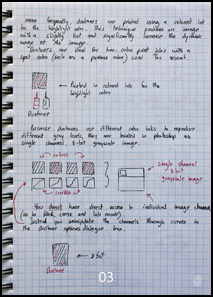 more frequently, duotones are printed using a colored ink
for the highlight color. This technique produces an image
with a slightly tint and significantly increase the dynamic
range of the image.
Duotones are ideal for two-color print jobs with a
spot color (such as a pantone color) used for accent.
Printed in colored ink for the
highlight colors
Duotoner
because duotones use different color inks to reproduce
different gray levels, they are treated in photoshop as
single channel, 8-bit grayscale image.
colors
single channel
8-bit
grayscale image
curves
You don't have direct access to individual image channels
(as in RGB, CMYK and Lab mode).
Instead you manipulate the channels through curves in
the duotone options dialogue box.
8 bit
Duotoner
03